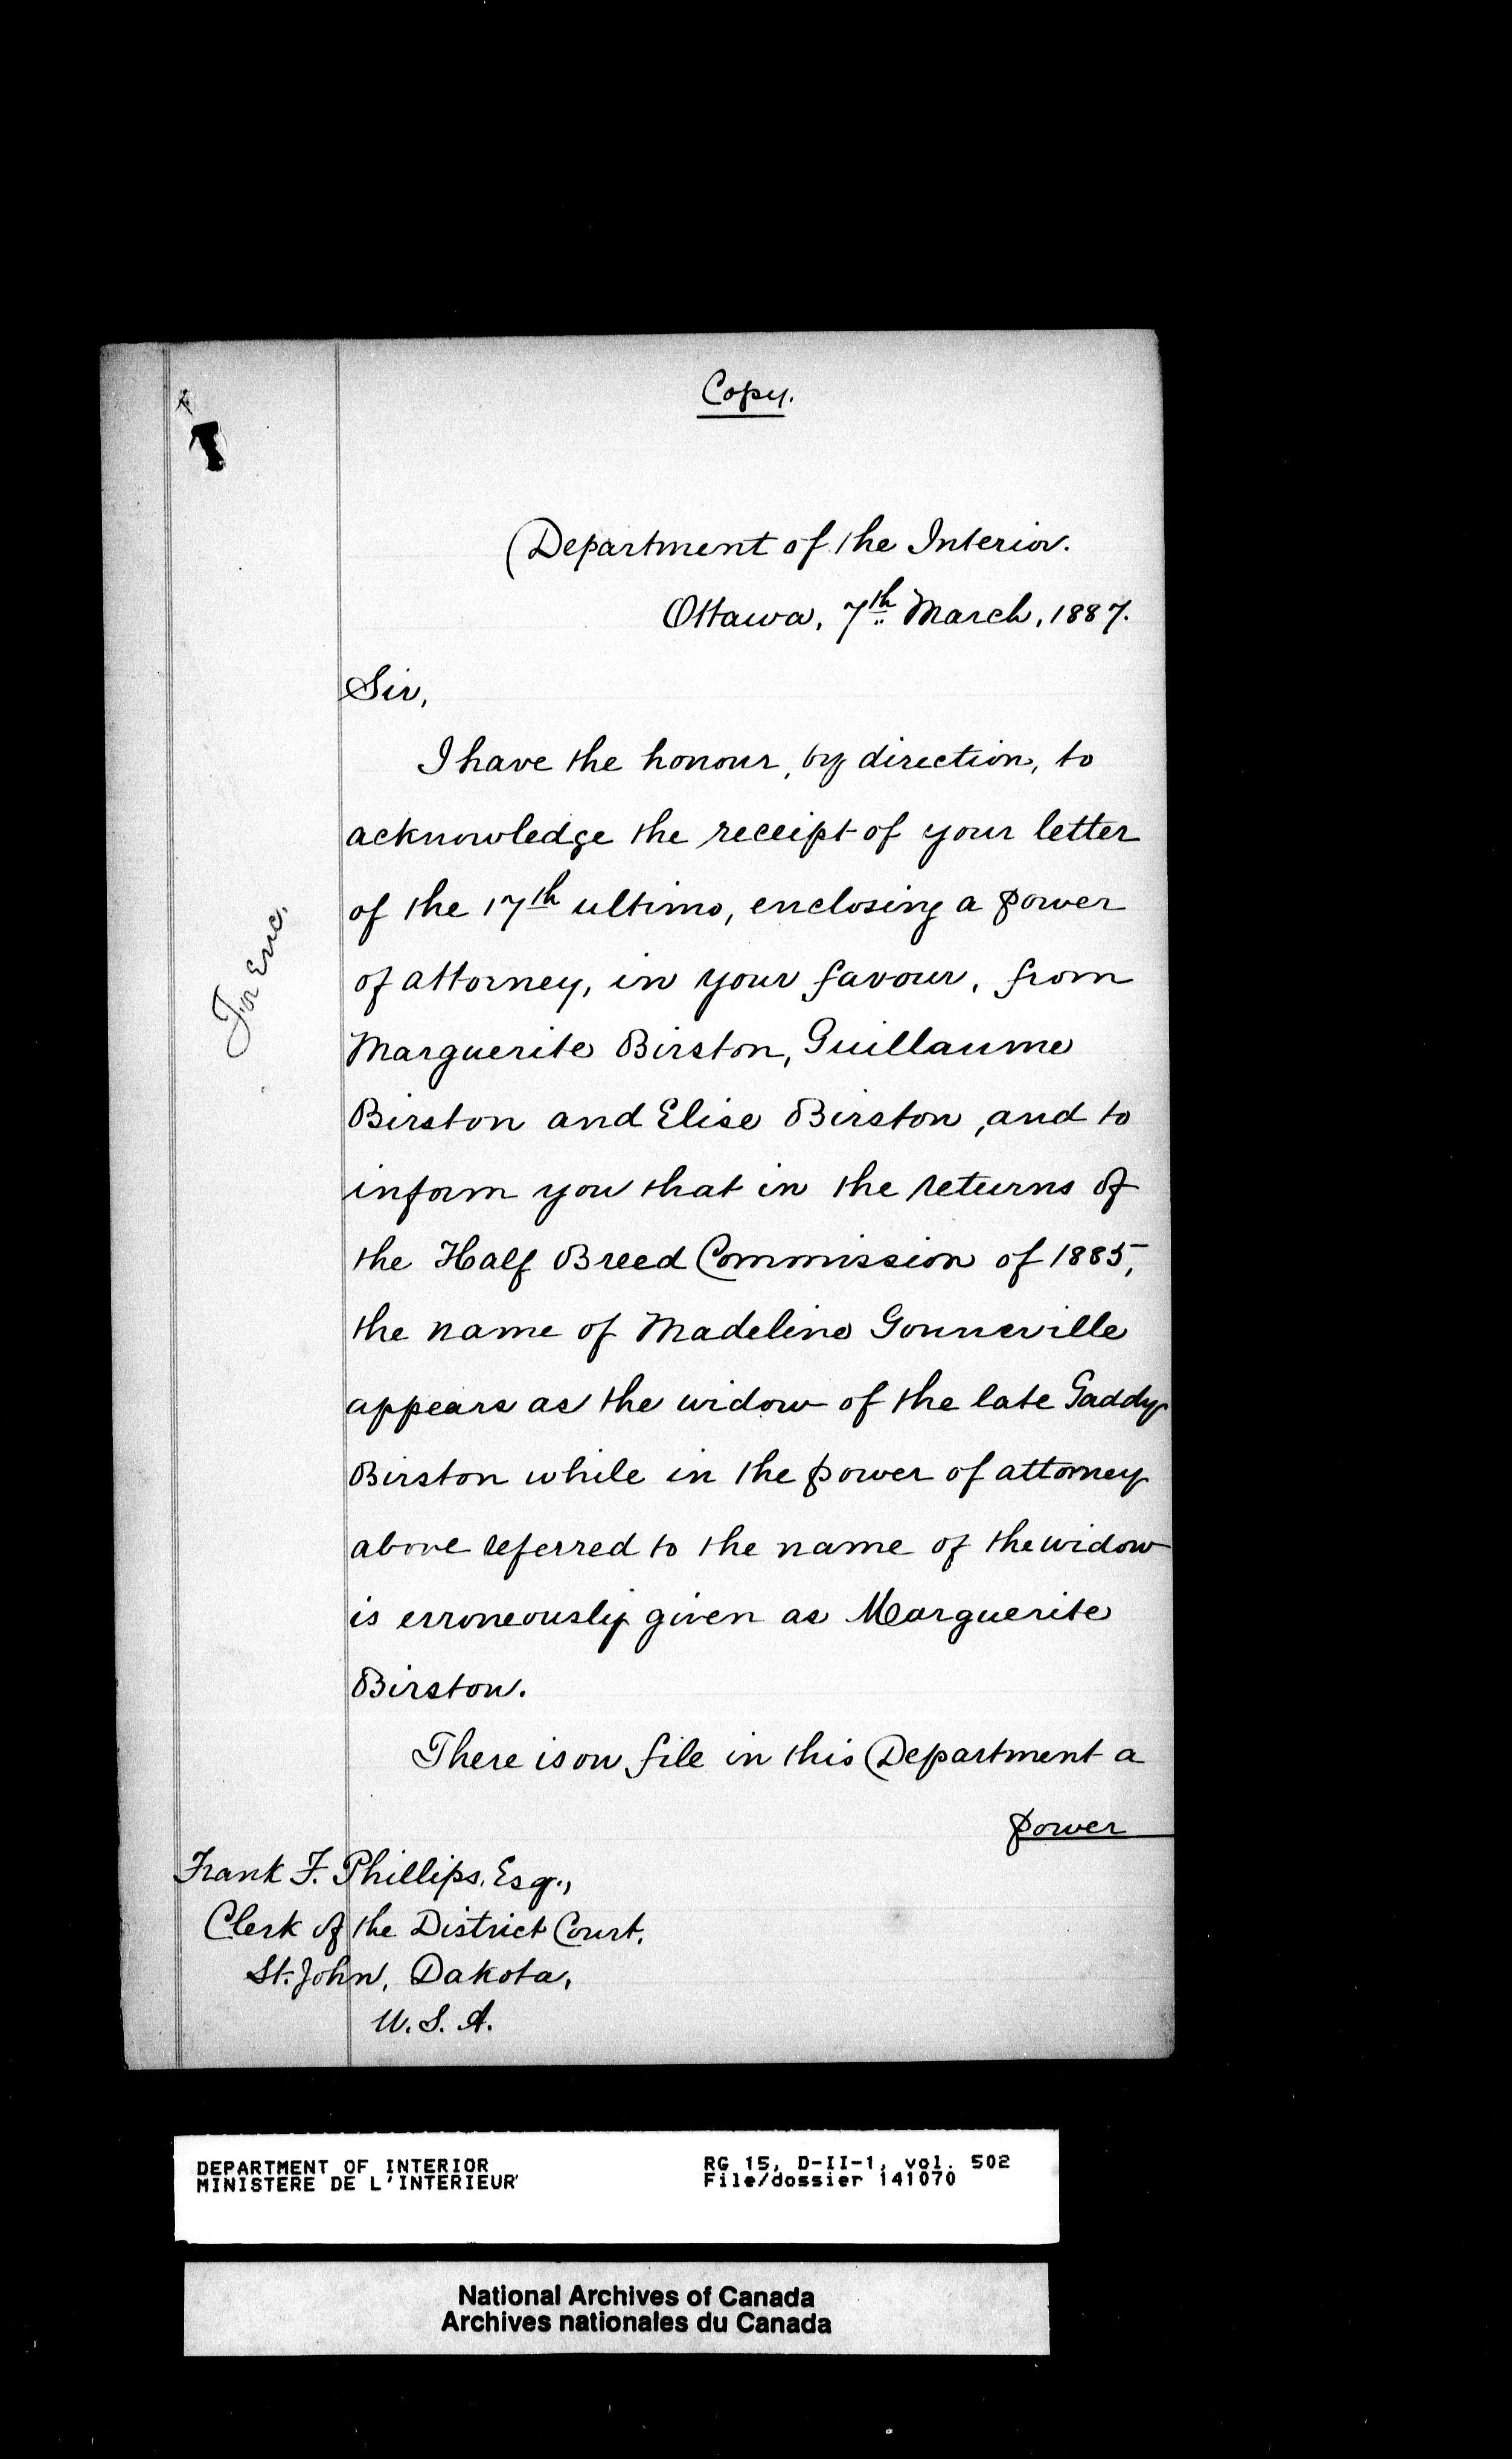 Copy.
Department of the Interior.
Ottawa, 7th March, 1887.
Sir,
I have the honour, by direction, to
acknowledge the receipt of your letter
of the 17th ultimo, enclosing a power
of attorney, in your favour, from
Marguerite Birston, Guillaume
Birston and Elise Birston, and to
inform you that in the returns of
the Half Breed Commission of 1885,
the name of Madeline Gonneville
appears as the widow of the late Gaddy
Birston while in the power of attorney
above referred to the name of the widow
is erroneously given as Marguerite
Birston.
There is on file in this Department a
power
For Enc.
Frank F. Phillips, Esq.,
Clerk of the District Court,
St. John, Dakota,
U.S.A.
DEPARTMENT OF INTERIOR
MINISTERE DE L'INTERIEUR
RG 15, D-II-1, vol. 502
File/dossier 141070
National Archives of Canada
Archives nationales du Canada